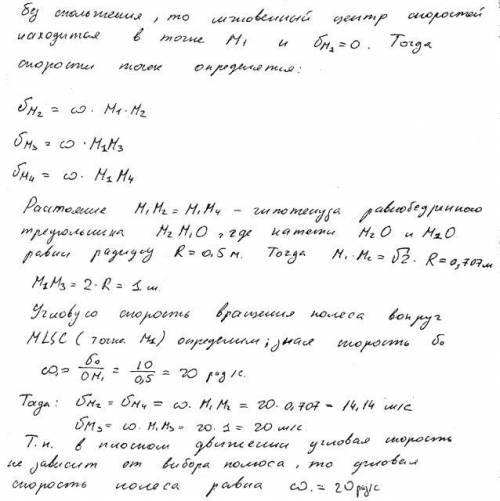 без скольжения, то мгновенный центр скоростей
находится в точке М₁ и бм₁ = 0. Тогда
скорости точек определятся:
бм₂ = ω · М₁·М₂
бм₃ = ω · М₁М₃
бм₄ = ω · М₁М₄
Растояние М₁М₂ = М₁М₄ – гипотенуза равнобедренного
треугольника М₂М₁О, где катеты М₂О и М₁О
равны радиусу R = 0,5 м. Тогда М₁·М₂ = √2 · R = 0,707 м
М₁М₃ = 2·R = 1 м.
Угловую скорость вращения колеса вокруг
МЦС (точке М₁) определим, зная скорость бо
ω = бо/ОМ₁ = 10/0,5 = 20 рад/с.
Тогда: бм₂ = бм₄ = ω · М₁М₂ = 20·0,707 = 14,14 м/с
бм₃ = ω · М₁М₃ = 20·1 = 20 м/с
Т.к. в плоском движении угловая скорость
не зависит от выбора полюса, то угловая
скорость колеса равна ω = 20 рад/с